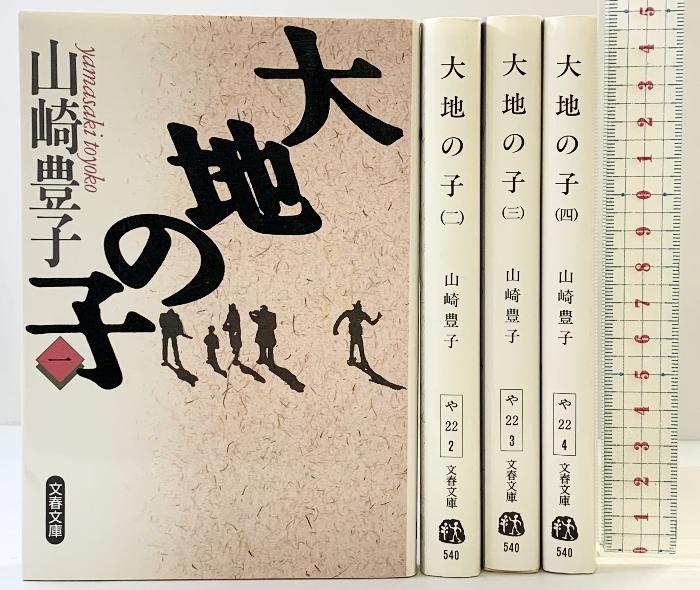 大地の子
一
山崎豊子
yamasaki toyoko
文春文庫
大地の子(二)
山崎豊子
や
22
2
文春文庫
540
大地の子(三)
山崎豊子
や
22
3
文春文庫
540
大地の子(四)
山崎豊子
や
22
4
文春文庫
540
5
4
3
2
1
0
9
8
7
6
5
4
3
2
1
0